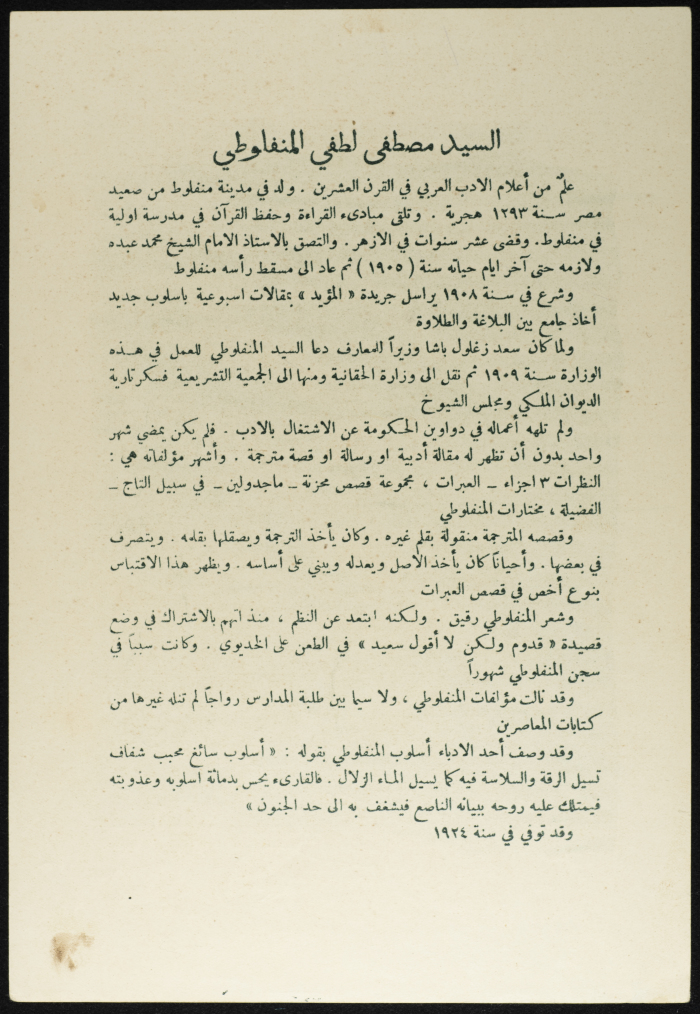 السيد مصطفى لطفي المنفلوطي
علمٌ من أعلام الادب العربي في القرن العشرين . ولد في مدينة منفلوط من صعيد
مصر سنة ١٢٩٣ هجرية . وتلقى مبادىء القراءة وحفظ القرآن في مدرسة اولية
في منفلوط. وقضى عشر سنوات في الازهر . والتصق بالاستاذ الامام الشيخ محمد عبده
ولازمه حتى آخر ايام حياته سنة ( ١٩٠٥ ) ثم عاد الى مسقط رأسه منفلوط
وشرع في سنة ١٩٠٨ يراسل جريدة « المؤيد » بمقالات اسبوعية باسلوب جديد
أخاذ جامع بين البلاغة والطلاوة
ولما كان سعد زغلول باشا وزيراً للمعارف دعا السيد المنفلوطي للعمل في هذه
الوزارة سنة ١٩٠٩ ثم نقل الى وزارة الحقانية ومنها الى الجمعية التشريعية فسكرتارية
الديوان الملكي ومجلس الشيوخ
ولم تلهه أعماله في دواوين الحكومة عن الاشتغال بالادب . فلم يكن يمضي شهر
واحد بدون أن تظهر له مقالة أدبية او رسالة او قصة مترجمة . وأشهر مؤلفاته هي :
النظرات ٣ اجزاء ــ العبرات ، مجموعة قصص محزنة ــ ماجدولين ــ في سبيل التاج ــ
الفضيلة ، مختارات المنفلوطي
وقصصه المترجمة منقولة بقلم غيره . وكان يأخذ الترجمة ويصقلها بقلمه . ويتصرف
في بعضها . وأحياناً كان يأخذ الاصل ويعدله ويبني على أساسه . ويظهر هذا الاقتباس
بنوع أخص في قصص العبرات
وشعر المنفلوطي رقيق . ولكنه ابتعد عن النظم ، منذ اتهم بالاشتراك في وضع
قصيدة « قدوم ولكن لا أقول سعيد » في الطعن على الخديوي . وكانت سبباً في
سجن المنفلوطي شهوراً
وقد نالت مؤلفات المنفلوطي ، ولا سيما بين طلبة المدارس رواجاً لم تنله غيرها من
كتابات المعاصرين
وقد وصف أحد الادباء أسلوب المنفلوطي بقوله : « أسلوب سائغ محبب شفاف
تسيل الرقة والسلاسة فيه كما يسيل الماء الزلال . فالقارىء يحس بدماثة اسلوبه وعذوبته
فيمتلك عليه روحه ببيانه الناصع فيشغف به الى حد الجنون »
وقد توفي في سنة ١٩٢٤